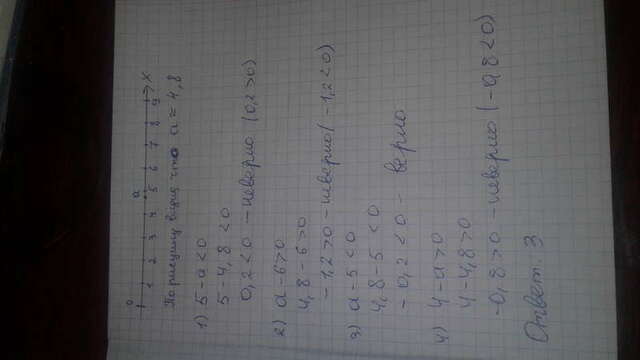 0 a
1 2 3 4 5 6 7 8 9 x
По рисунку видно что a = 4,8
1) 5-a<0
5-4,8<0
0,2<0 - неверно (0,2>0)
2) a-6>0
4,8-6>0
-1,2>0 - неверно (-1,2<0)
3) a-5<0
4,8-5<0
-0,2<0 - верно
4) 4-a>0
4-4,8>0
-0,8>0 - неверно (-0,8<0)
Ответ: 3